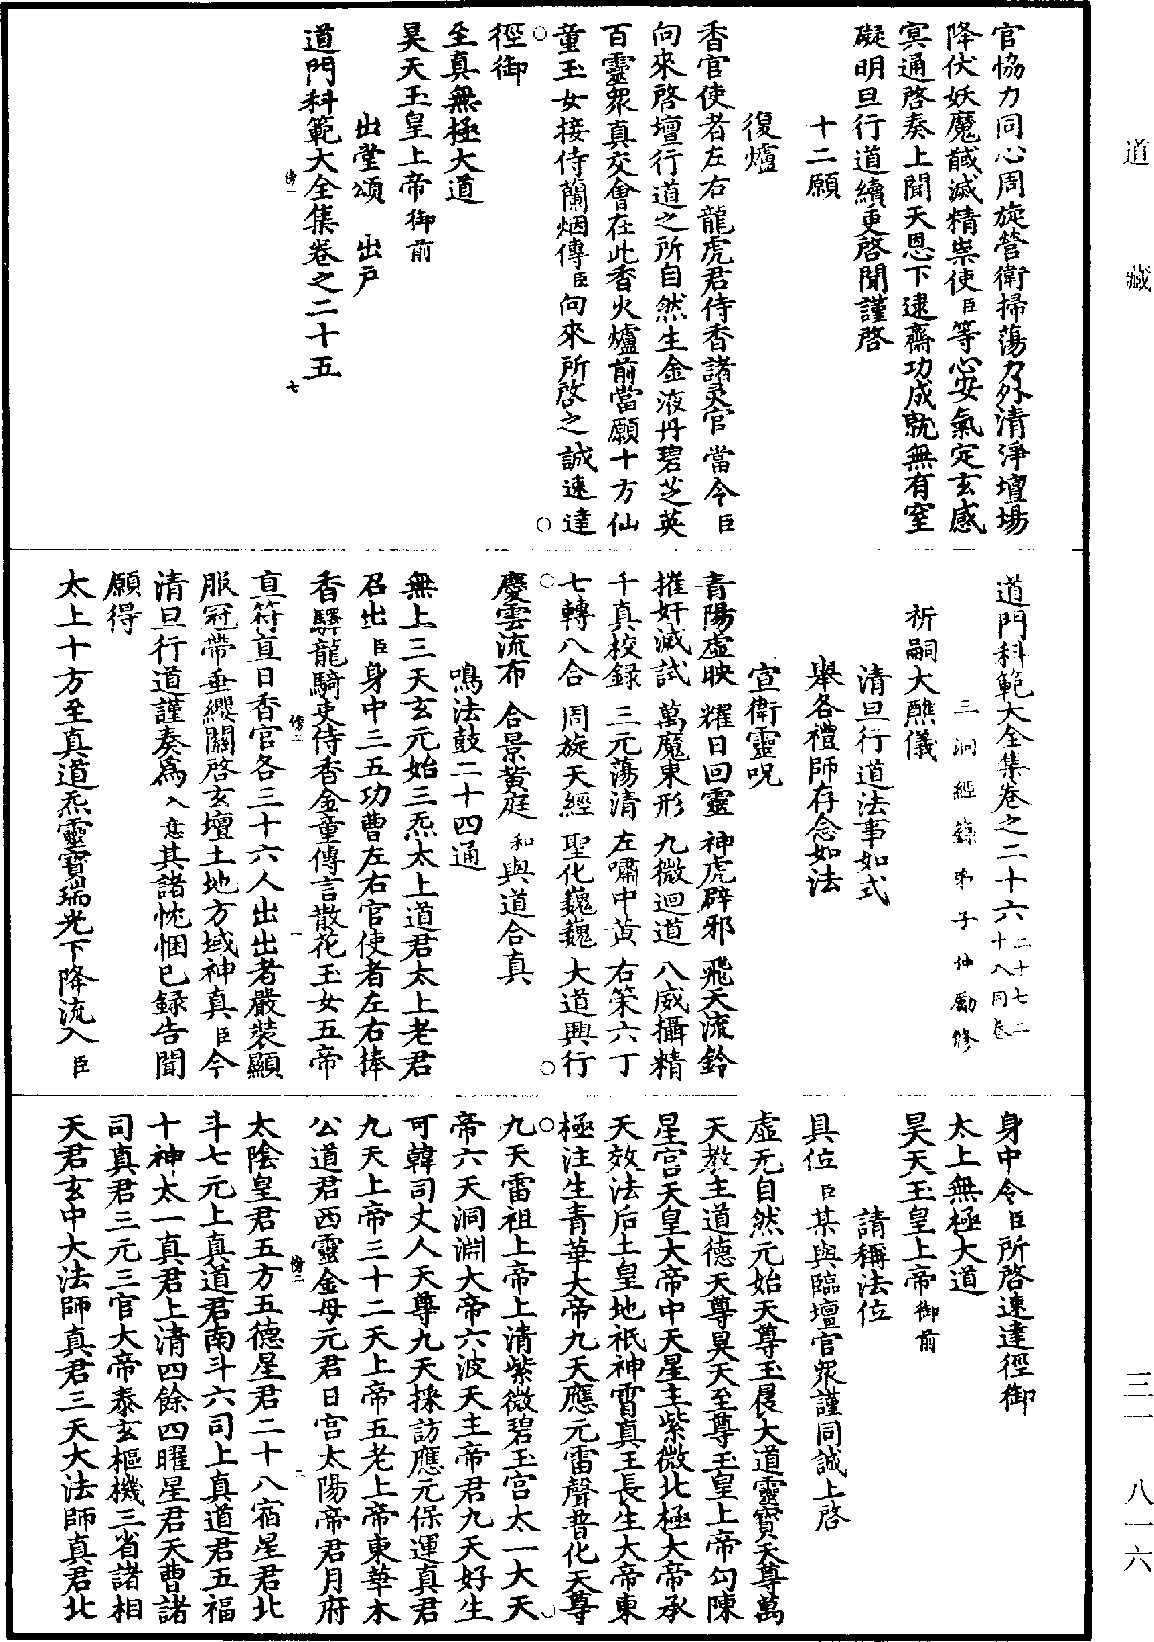 道 藏
三一 八一六
官恊力同心周旋營衛掃蕩力外清淨壇場
降伏妖魔馘滅精祟使臣等心安氣定玄感
冥通啓奏上聞天恩下逮齋功成就無有窒
礙明旦行道續更啓聞謹啓
十二願
復爐
香官使者左右龍虎君侍香諸灵官當今臣
向來啓壇行道之所自然生金液丹碧芝英
百靈衆真交會在此香火爐前當願十方仙
童玉女接侍蘭烟傳臣向來所啓之誠速達
徑御
至真無極大道
昊天玉皇上帝御前
出堂頌 出户
道門科範大全集卷之二十五
道門科範大全集卷之二十六二十七二十八同卷
三洞經籙弟子仲勵修
祈嗣大醮儀
清旦行道法事如式
舉各禮師存念如法
宣衛靈呪
青陽虚映 耀日回靈 神虎辟邪 飛天流鈴
摧奸滅試 萬魔束形 九微迴道 八威攝精
千真校録 三元蕩清 左嘯中黄 右策六丁
七轉八合 周旋天經 聖化巍巍 大道興行
慶雲流布 合景黄庭 和與道合真
鳴法鼓二十四通
無上三天玄元始三炁太上道君太上老君
召出臣身中三五功曹左右官使者左右捧
香驛龍騎吏侍香金童傳言散花玉女五帝
直符直日香官各三十六人出出者嚴裝顯
服冠帶垂纓關啓玄壇土地方域神真臣今
清旦行道謹奏爲入意其諸忱悃已録告聞
願得
太上十方至真道炁靈寶瑞光下降流入臣
身中令臣所啓速達徑御
太上無極大道
昊天玉皇上帝御前
請稱法位
具位臣某與臨壇官衆謹同誠上啓
虚无自然元始天尊玉晨大道靈寶天尊萬
天教主道德天尊昊天至尊玉皇上帝勾陳
星宫天皇大帝中天星主紫微北極大帝承
天效法后土皇地祇神霄真王長生大帝東
極注生青華大帝九天應元雷聲普化天尊
九天雷祖上帝上清紫微碧玉宫太一大天
帝六天洞淵大帝六波天主帝君九天好生
可韓司丈人天尊九天採訪應元保運真君
九天上帝三十二天上帝五老上帝東華木
公道君西靈金母元君日宫太陽帝君月府
太陰皇君五方五德星君二十八宿星君北
斗七元上真道君南斗六司上真道君五福
十神太一真君上清四餘四曜星君天曹諸
司真君三元三官大帝泰玄樞機三省諸相
天君玄中大法師真君三天大法師真君北